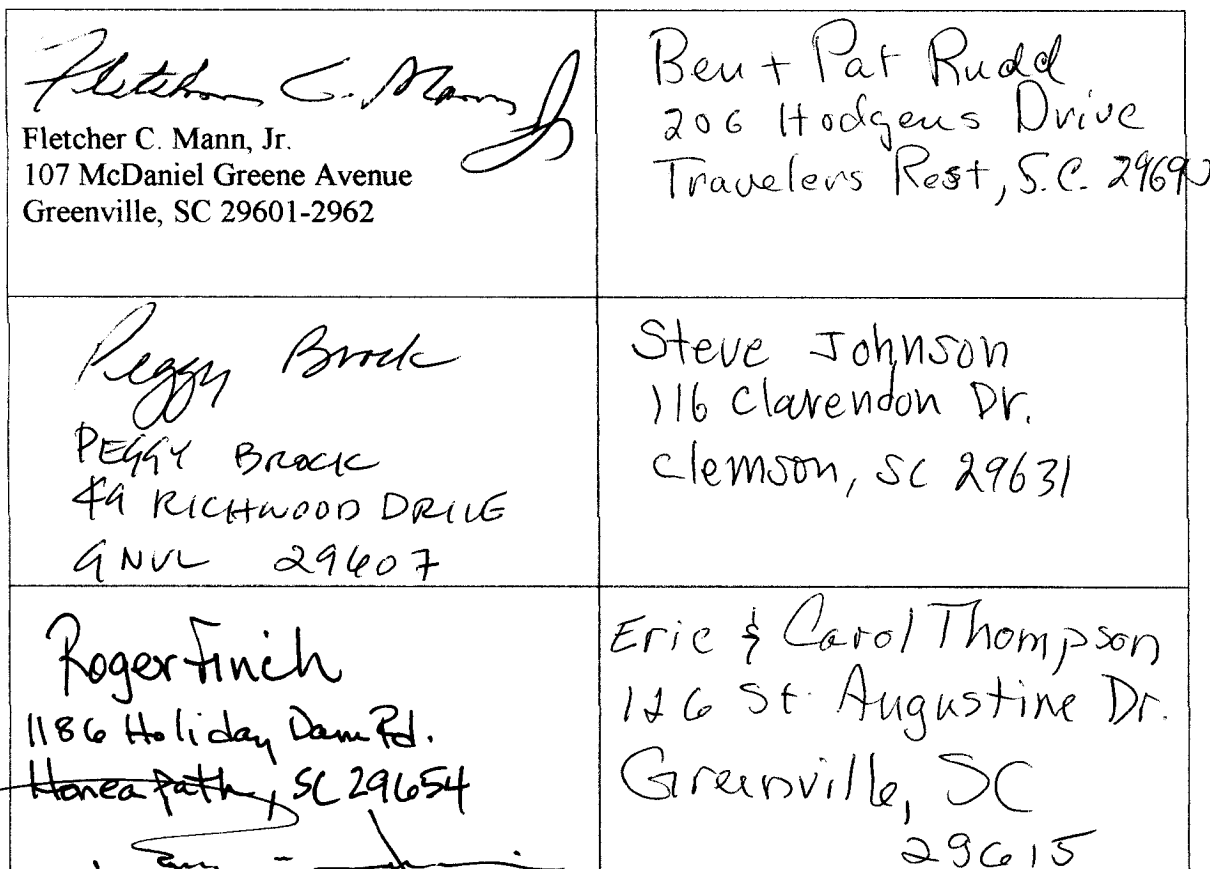 Fletcher C. Mann Jr
Fletcher C. Mann, Jr.
107 McDaniel Greene Avenue
Greenville, SC 29601-2962
Ben + Pat Rudd
206 Hodgens Drive
Travelers Rest, S.C. 29690
Peggy Brock
PEGGY BROCK
49 RICHWOOD DRIVE
GNVL 29607
Steve Johnson
116 Clarendon Dr.
Clemson, SC 29631
Roger Finch
1186 Holiday Dam Rd.
Honea Path, SC 29654
Eric & Carol Thompson
126 St. Augustine Dr.
Greenville, SC
29615